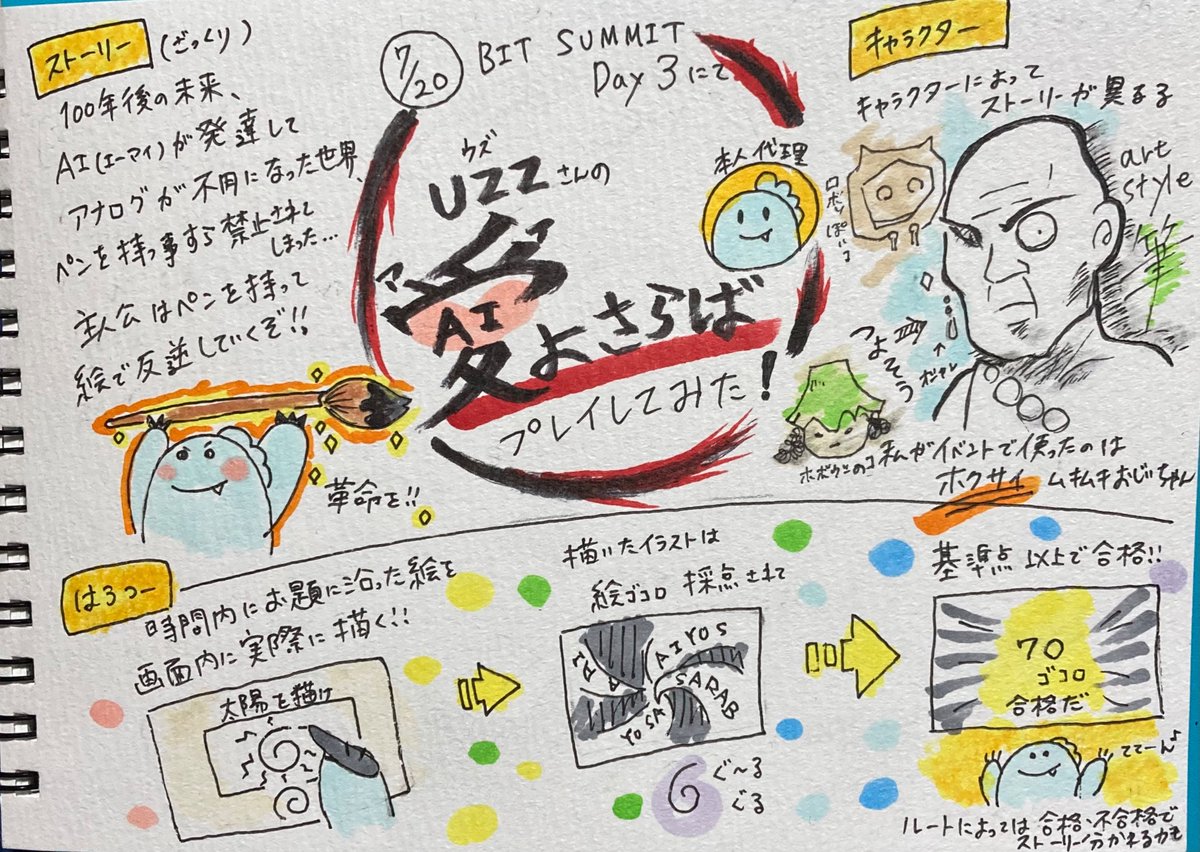 ストーリー(ざっくり)
100年後の未来、
AI(エーマイ)が発達して
アナログが不用になった世界、
ペンを持つ事すら禁止されて
しまった…
主人公はペンを持って
絵で反逆していくぞ!!
革命を!!
7/20
BIT SUMMIT
Day 3にて
ウズ
UZZさんの
愛
AI
よさらば
プレイしてみた!
本人代理
キャラクター
キャラクターによって
ストーリーが異なる
art
style
筆
ロボっぽい
つよそう
私がイベントで使ったのは
ホクサイ ムキムキおじいちゃん
時間内にお題に沿った絵を
画面内に実際に描く!!
太陽を描け
描いたイラストは
絵ゴコロ 採点されて
AIYOS
SARAB
YOSA
ぐ〜る
ぐる
基準点以上で合格!!
70
ゴコロ
合格だ
ててーん♪
ルートによっては合格、不合格で
ストーリー分かれるかも